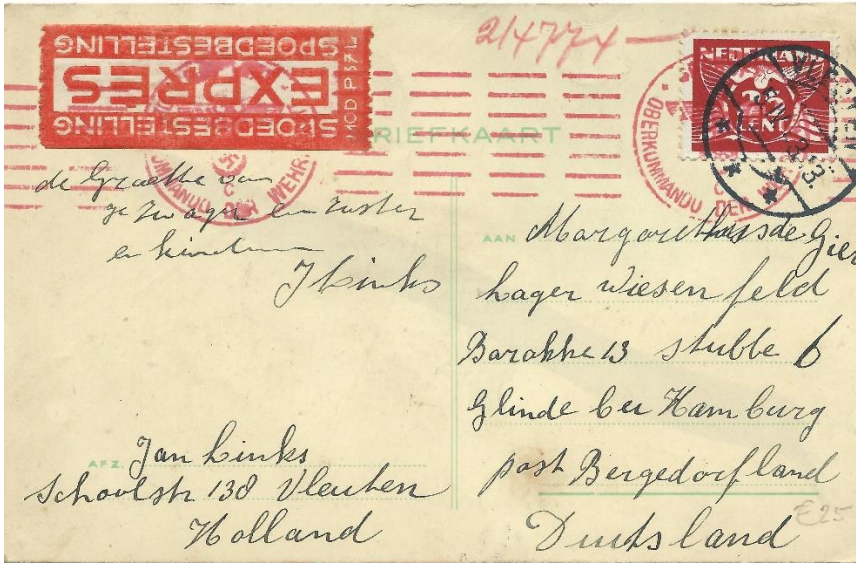 2/4774
SPOEDBESTELLING
EXPRÈS
SPOEDBESTELLING
NEDERLAND
CENT
BRIEFKAART
OBERKOMMANDO DER WEHR
OBERKOMMANDO DER
de Groeten van
je zwager en zuster
en kinderen
J Links
AAN
de Gier
Lager Wiesenfeld
Barakke 13 stubbe 6
Glinde bei Hamburg
post Bergedorfland
Duitsland
AFZ. Jan Links
Schoolstr 138 Vleuten
Holland
€25